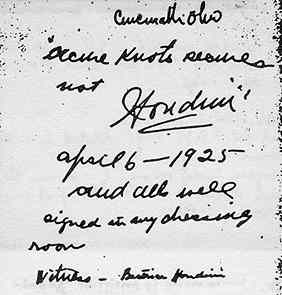 Cincinnatti Ohio
"Acme Knots secures
not
Houdini"
April 6 – 1925
and all well
signed in my dressing
room
Witness – Beatrice Houdini